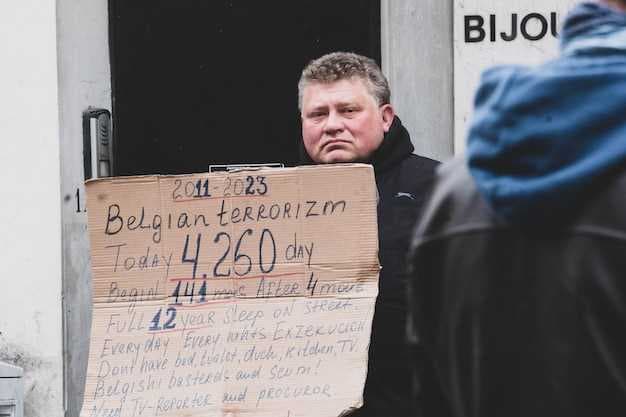 BIJOU
2011-2023
Belgian terrorizm
Today 4,260 day
Begin 141 mois After 4 mois
Full 12 year sleep on street.
Everyday Every nights Exzerucich
Dont have bed, toilet, duch, Kitchen, TV.
Belgishi basterds and scum!
Need TV-Reporter and procuror.